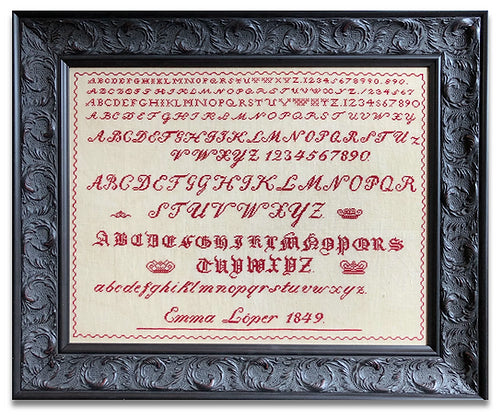 ABCDEFGHIKLMNOPQRSTUVWXYZ.1234567890.
ABCDEFGHIKLMNOPQRSTUVWXYZ.1234567890
ABCDEFGHIKLMNOPQRSTUVWXYZ
ABCDEFGHIKLMNOPQRSTU
VWXYZ 1234567890
ABCDEFGHIKLMNOPQR
STUVWXYZ
ABCDEFGHIKLMNOPQRS
TUVWXYZ.
abcdefghiklmnopqrstuvwxyz.
Emma Löper 1849.